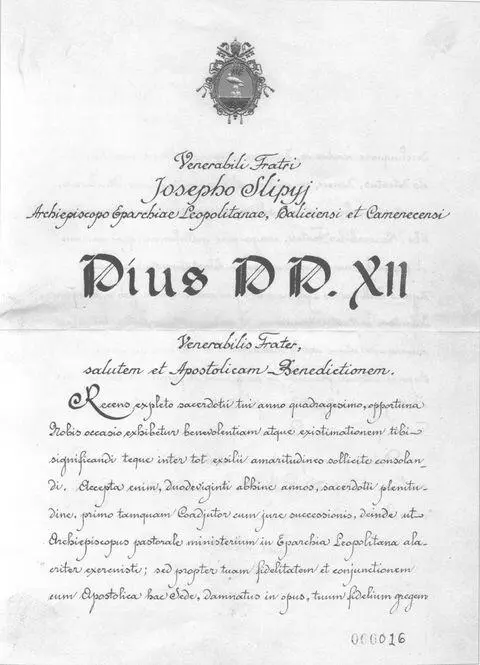 Venerabili Fratri
Josepho Slipyj
Archiepiscopo Eparchiae Leopolitanae, Haliciensi et Camenecensi
Pius P P. XII
Venerabilis Frater,
salutem et Apostolicam Benedictionem.
Recens expleto sacerdotii tui anno quadragesimo, opportuna
Nobis occasio exhibetur benevolentiam atque existimationem tibi
significandi teque inter tot exsilii amaritudines sollicite consolan-
di. Accepta enim, duodeviginti abhinc annos, sacerdotii plenitu-
dine, primo tamquam Coadjutor cum jure successionis, deinde ut
Archiepiscopus pastorale ministerium in Eparchia Leopolitana ala-
criter exercuisti; sed propter tuam fidelitatem et conjunctionem
cum Apostolica hac Sede, damnatus in opus, tuum fidelium gregem
000016